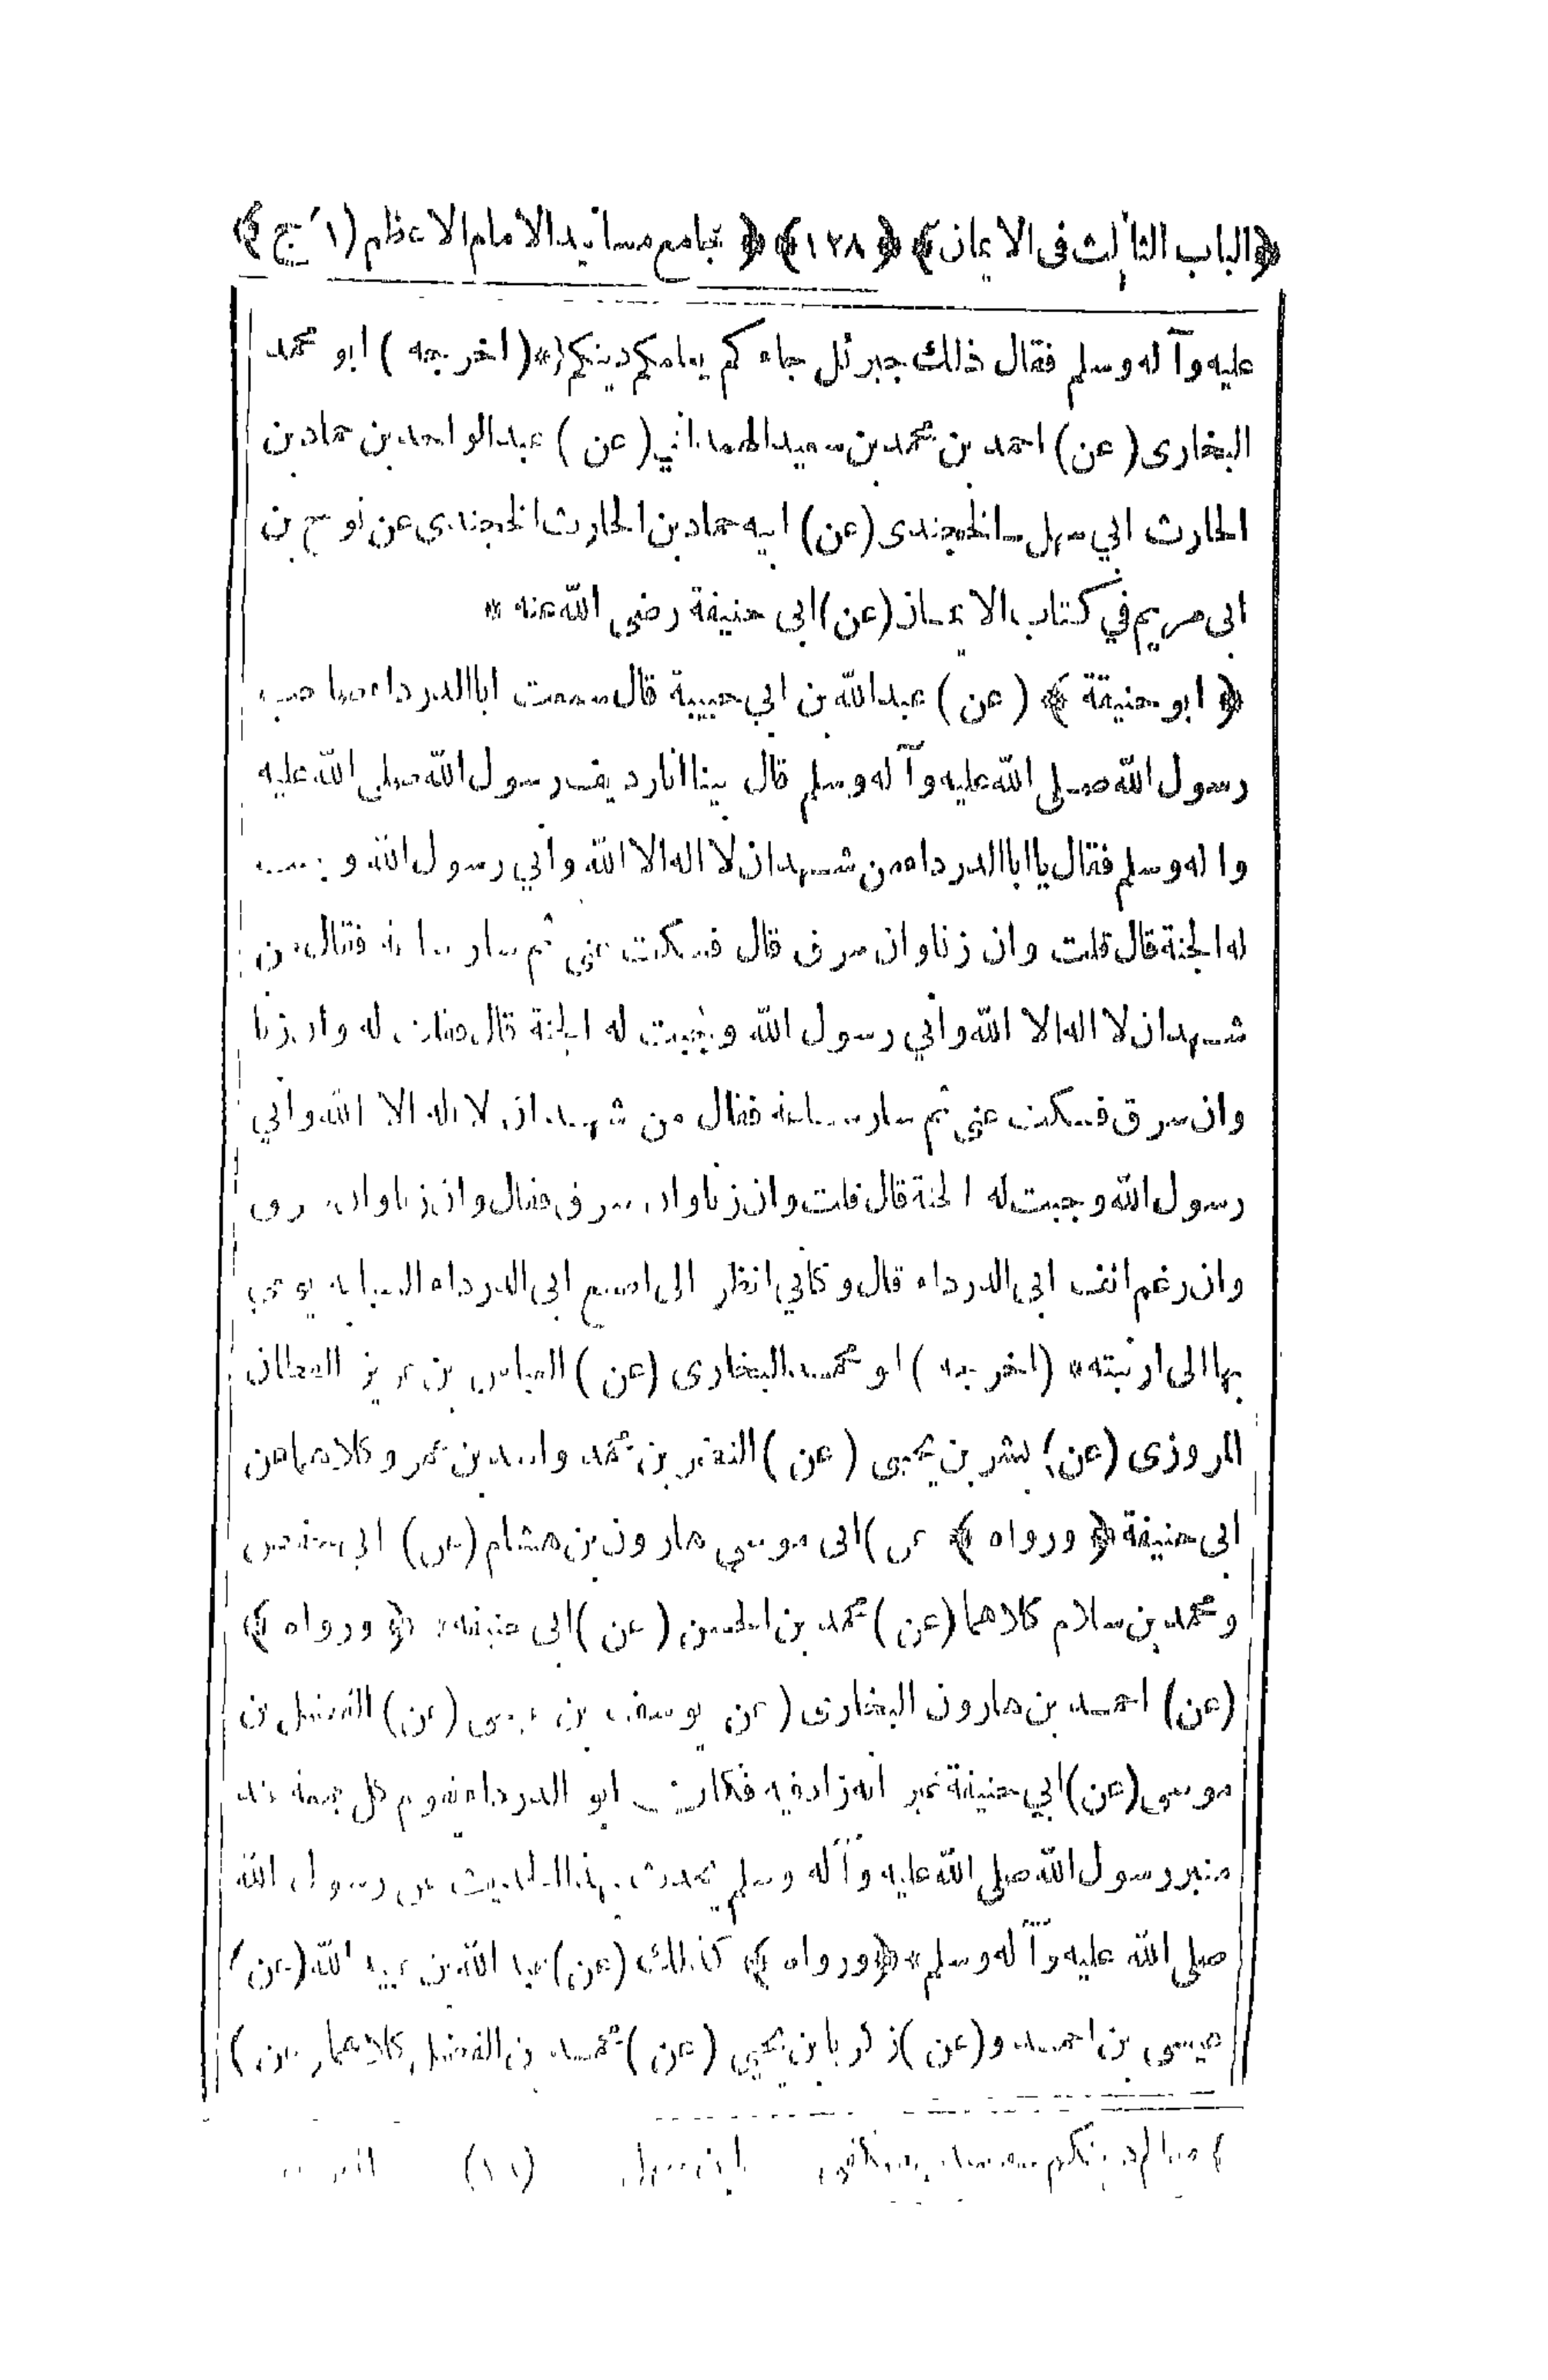 ﴿الباب الثالث فى الايمان﴾ ﴿١٢٨﴾ ﴿ جامع مسانيد الامام الاعظم (١ ج)﴾
عليه وآله وسلم فقال ذلك جبرئل جاء كم يعلمكم دينكم * (اخرجه) ابو محمد
البخارى (عن) احمد بن محمد بن سعيد الهمداني (عن) عبد الواحد بن حماد بن
الحارث ابي سهل الخجندى (عن) ابيه حماد بن الحارث الخجندى عن نوح بن
ابى مريم في كتاب الايمان (عن) ابى حنيفة رضى الله عنه *
﴿ ابو حنيفة ﴾ (عن) عبد الله بن ابي حبيبة قال سمعت ابا الدرداء صاحب
رسول الله صلى الله عليه وآله وسلم قال بينا انا رديف رسول الله صلى الله عليه
وآله وسلم فقال يا ابا الدرداء من شهد ان لا اله الا الله واني رسول الله وجبت
له الجنة قال قلت وان زنا وان سرق قال فسكت عني ثم سار ساعة فقال من
شهد ان لا اله الا الله واني رسول الله وجبت له الجنة قال قلت له وان زنا
وان سرق فسكت عني ثم سار ساعة فقال من شهد ان لا اله الا الله واني
رسول الله وجبت له الجنة قال قلت وان زنا وان سرق فقال وان زنا وان سرق
وان رغم انف ابى الدرداء قال وكاني انظر الى اصبع ابى الدرداء السبابة يومى
بها الى ارنبته * (اخرجه) ابو محمد البخارى (عن) العباس بن عزيز القطان
المروزى (عن) بشر بن يحيى (عن) النضر بن محمد واسد بن عمرو كلاهما عن
ابى حنيفة ﴿ ورواه ﴾ (عن) ابى موسى هارون بن هشام (عن) ابى حفص
ومحمد بن سلام كلاهما (عن) محمد بن الحسن (عن) ابى حنيفة * ﴿ ورواه ﴾
(عن) احمد بن هارون البخارى (عن) يوسف بن عيسى (عن) الفضل بن
موسى (عن) ابي حنيفة غير انه زاد فيه فكان ابو الدرداء يقوم كل جمعة عند
منبر رسول الله صلى الله عليه وآله وسلم يحدث بهذا الحديث عن رسول الله
صلى الله عليه وآله وسلم * ﴿ورواه ﴾ كذلك (عن) عبد الله بن عبيد الله (عن)
عيسى بن احمد و (عن) زكريا بن يحيى (عن) محمد بن الفضل كلاهما (عن)